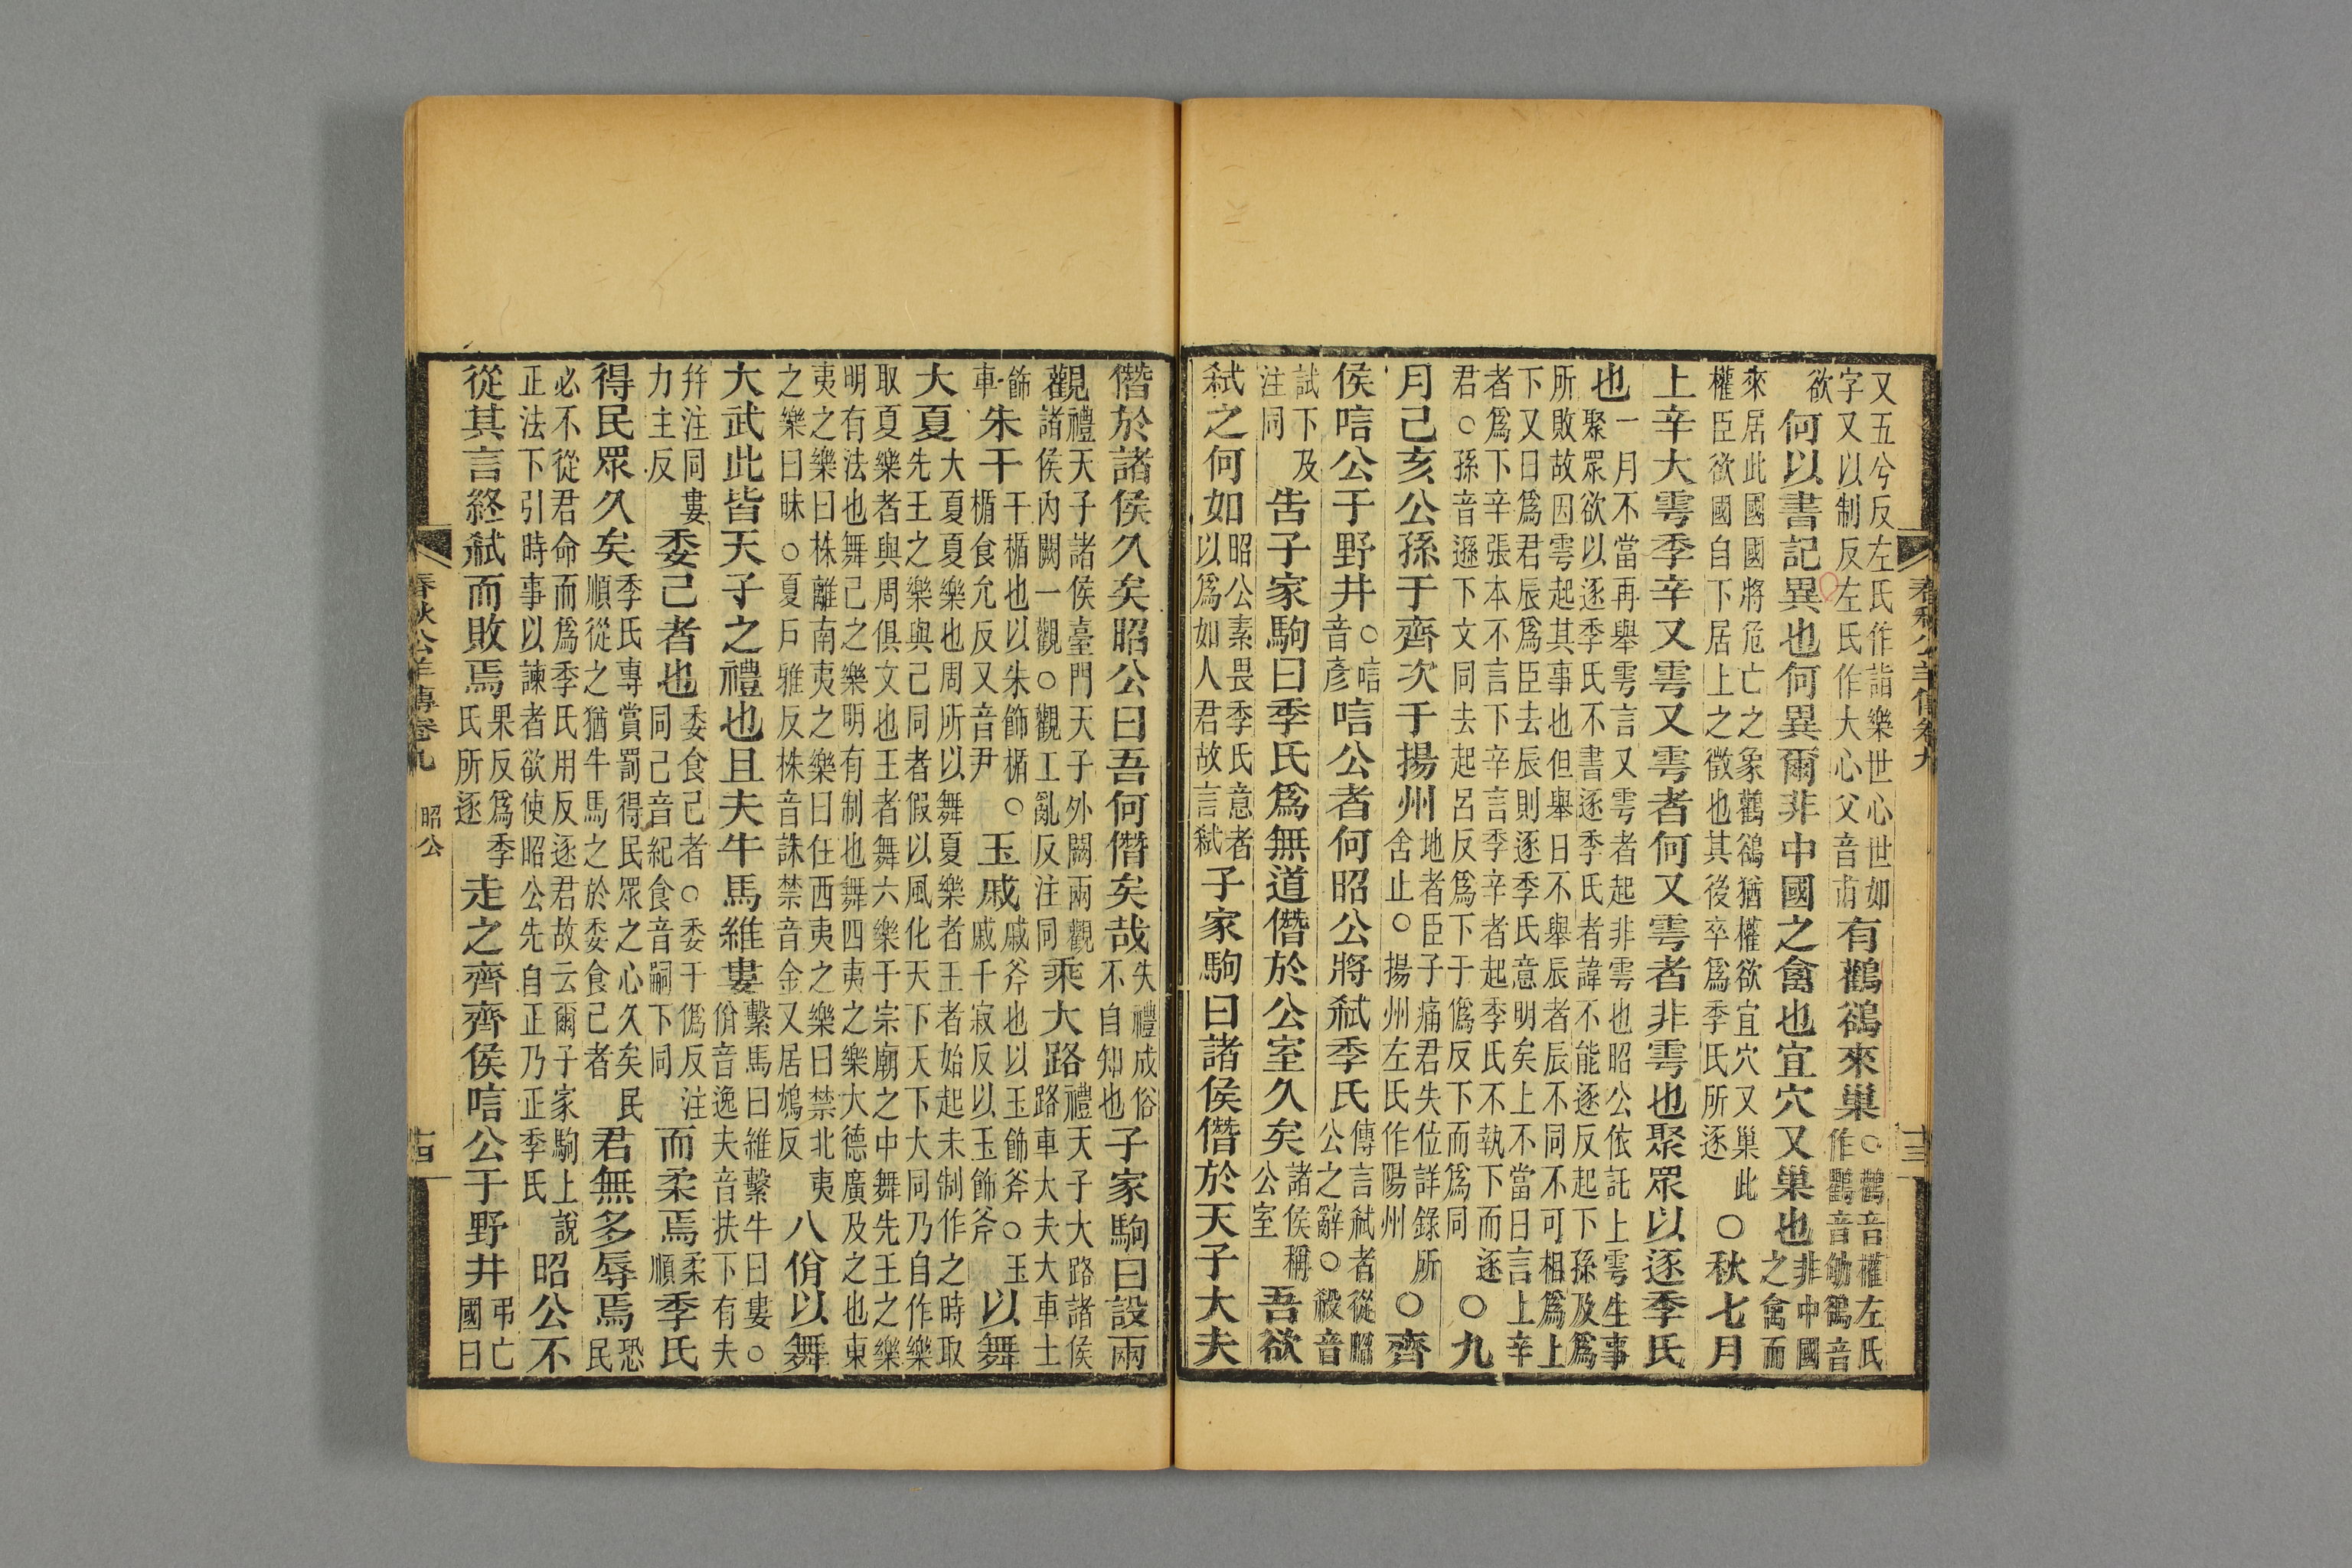 又五兮反左氏作詣樂世心世如字又以制反左氏作大心父音甫有鸛鵒來巢○鸛音權左氏作鸜音劬鵒音
欲何以書記異也何異爾非中國之禽也宜穴又巢也非中國之禽而
來居此國國將危亡之象鸛鵒猶權欲宜穴又巢此權臣欲國自下居上之徵也其後卒爲季氏所逐○秋七月
上辛大雩季辛又雩又雩者何又雩者非雩也聚眾以逐季氏
也一月不當再舉雩言又雩者起非雩也昭公依託上雩生事聚眾欲以逐季氏不書逐季氏者諱不能逐反起下孫及爲
所敗故因雩起其事也但舉日不舉辰者辰不同不可相爲上下又日爲君辰爲臣去辰則逐季氏意明矣上不當日言上辛
者爲下辛張本不言下辛言季辛者起季氏不執下而逐君○孫音遜下文同去起呂反爲下于僞反下而爲同○九
月己亥公孫于齊次于揚州地者臣子痛君失位詳錄所舍止○揚州左氏作陽州○齊
侯唁公于野井○唁音彥唁公者何昭公將弒季氏傳言弒者從昭公之辭○殺音
試下及注同告子家駒曰季氏爲無道僭於公室久矣諸侯稱公室吾欲
弒之何如昭公素畏季氏意者以爲如人君故言弒子家駒曰諸侯僭於天子大夫
春秋公羊傳卷九
十三
僭於諸侯久矣昭公曰吾何僭矣哉失禮成俗不自知也子家駒曰設兩
觀禮天子諸侯臺門天子外闕兩觀諸侯內闕一觀○觀工亂反注同乘大路禮天子大路諸侯路車大夫大車士
飾車朱干干楯也以朱飾楯○楯食允反又音尹玉戚戚斧也以玉飾斧○玉戚千寂反以玉飾斧以舞
大夏大夏夏樂也周所以舞夏樂者王者始起未制作之時取先王之樂與己同者假以風化天下天下大同乃自作樂
取夏樂者與周俱文也王者舞六樂于宗廟之中舞先王之樂明有法也舞己之樂明有制也舞四夷之樂大德廣及之也東
夷之樂曰株離南夷之樂曰任西夷之樂曰禁北夷之樂曰昧○夏戶雅反株音誅禁音金又居鴆反八佾以舞
大武此皆天子之禮也且夫牛馬維婁繫馬曰維繫牛曰婁○佾音逸夫音扶下有夫
幷注同婁力主反委己者也委食己者○委于僞反注同己音紀食音嗣下同而柔焉柔順季氏
得民眾久矣季氏專賞罰得民眾之心久矣民順從之猶牛馬之於委食己者君無多辱焉恐民
必不從君命而爲季氏用反逐君故云爾子家駒上說正法下引時事以諫者欲使昭公先自正乃正季氏昭公不
從其言終弒而敗焉果反爲季氏所逐走之齊齊侯唁公于野井弔亡國曰
春秋公羊傳卷九
昭公
十四